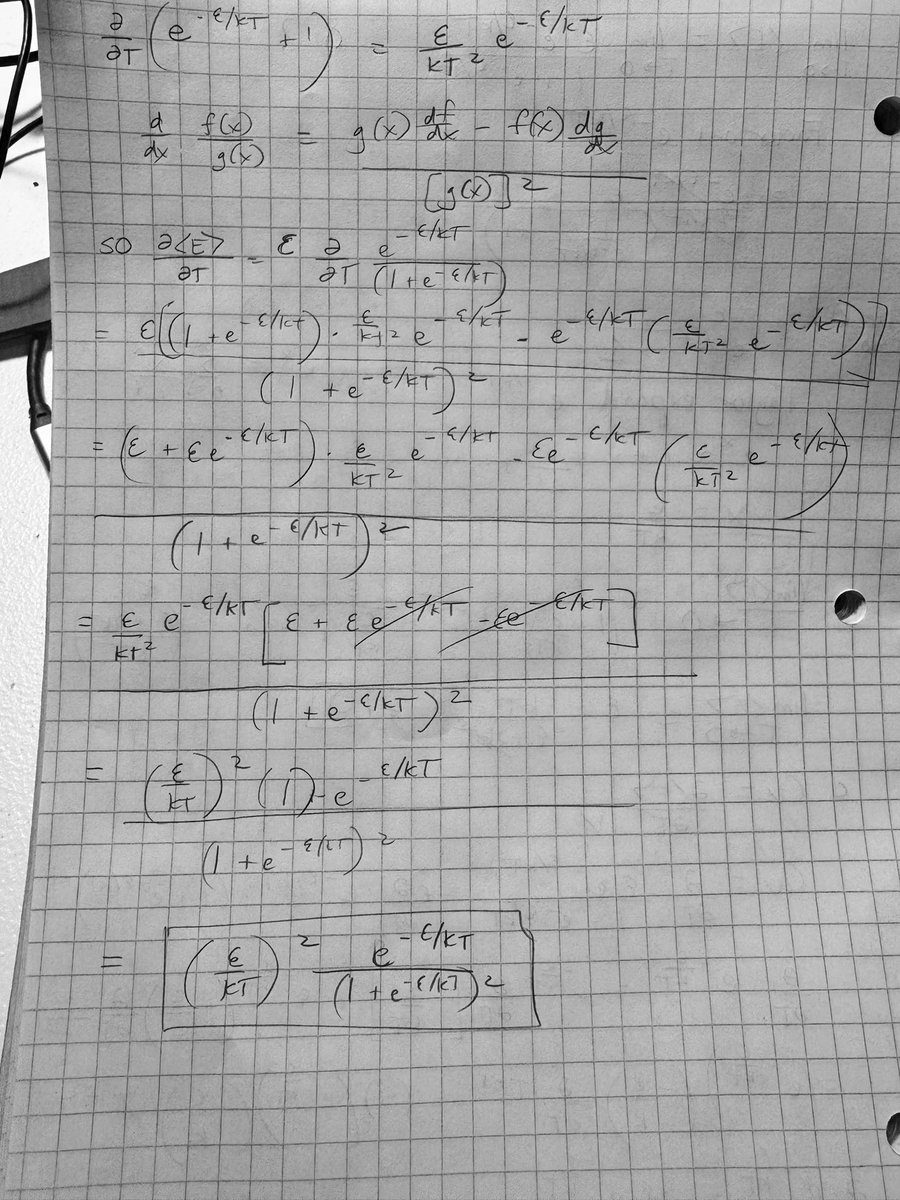 ∂/∂T (e^{-ε/kT} + 1) = ε/kT² e^{-ε/kT}
d/dx f(x)/g(x) = (g(x) df/dx - f(x) dg/dx) / [g(x)]²
so ∂<E>/∂T = ε ∂/∂T e^{-ε/kT}/(1+e^{-ε/kT})
= ε[(1+e^{-ε/kT}) · ε/kT² e^{-ε/kT} - e^{-ε/kT} (ε/kT² e^{-ε/kT})] / (1 + e^{-ε/kT})²
= (ε + εe^{-ε/kT}) · ε/kT² e^{-ε/kT} - εe^{-ε/kT} (ε/kT² e^{-ε/kT}) / (1 + e^{-ε/kT})²
= ε/kT² e^{-ε/kT} [ε + εe^{-ε/kT} - εe^{-ε/kT}] / (1 + e^{-ε/kT})²
= (ε/kT)² (1) - e^{-ε/kT} / (1 + e^{-ε/kT})²
= (ε/kT)² e^{-ε/kT} / (1 + e^{-ε/kT})²